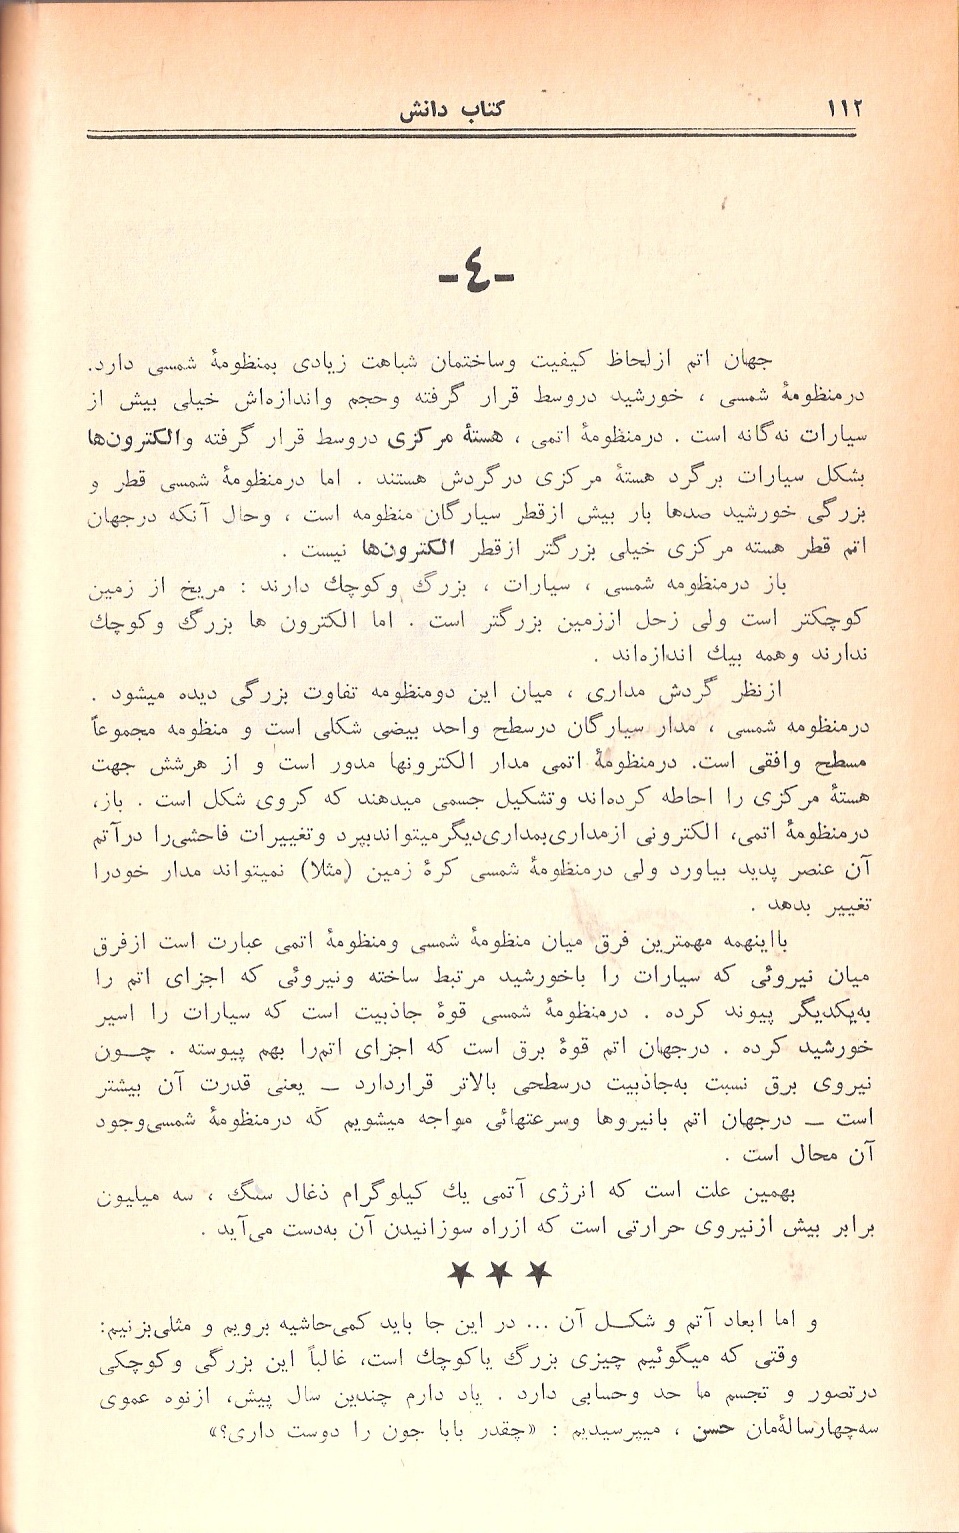 ۱۱۲
کتاب دانش
-٤-
جهان اتم ازلحاظ کیفیت وساختمان شباهت زیادی بمنظومهٔ شمسی دارد.
درمنظومهٔ شمسی ، خورشید دروسط قرار گرفته وحجم واندازه‌اش خیلی بیش از
سیارات نه‌گانه است . درمنظومهٔ اتمی ، هستهٔ مرکزی دروسط قرار گرفته والکترون‌ها
بشکل سیارات برگرد هستهٔ مرکزی درگردش هستند . اما درمنظومهٔ شمسی قطر و
بزرگی خورشید صدها بار بیش ازقطر سیارگان منظومه است ، وحال آنکه درجهان
اتم قطر هسته مرکزی خیلی بزرگتر ازقطر الکترون‌ها نیست .
باز درمنظومه شمسی ، سیارات ، بزرگ وکوچك دارند : مریخ از زمین
کوچکتر است ولی زحل اززمین بزرگتر است . اما الکترون ها بزرگ وکوچك
ندارند وهمه بیك اندازه‌اند .
ازنظر گردش مداری ، میان این دومنظومه تفاوت بزرگی دیده میشود .
درمنظومه شمسی ، مدار سیارگان درسطح واحد بیضی شکلی است و منظومه مجموعاً
مسطح وافقی است. درمنظومهٔ اتمی مدار الکترونها مدور است و از هرشش جهت
هستهٔ مرکزی را احاطه کرده‌اند وتشکیل جسمی میدهند که کروی شکل است . باز،
درمنظومهٔ اتمی، الکترونی ازمداری‌بمداری‌دیگرمیتواندبپرد وتغییرات فاحشی‌را درآتم
آن عنصر پدید بیاورد ولی درمنظومهٔ شمسی کرهٔ زمین (مثلا) نمیتواند مدار خودرا
تغییر بدهد .
بااینهمه مهمترین فرق میان منظومهٔ شمسی ومنظومهٔ اتمی عبارت است ازفرق
میان نیروئی که سیارات را باخورشید مرتبط ساخته ونیروئی که اجزای اتم را
به‌یکدیگر پیوند کرده . درمنظومهٔ شمسی قوهٔ جاذبیت است که سیارات را اسیر
خورشید کرده . درجهان اتم قوهٔ برق است که اجزای اتم‌را بهم پیوسته . چـون
نیروی برق نسبت به‌جاذبیت درسطحی بالاتر قراردارد ــ یعنی قدرت آن بیشتر
است ــ درجهان اتم بانیروها وسرعتهائی مواجه میشویم که درمنظومهٔ شمسی‌وجود
آن محال است .
بهمین علت است که انرژی آتمی یك کیلوگرام ذغال سنگ ، سه میلیون
برابر بیش ازنیروی حرارتی است که ازراه سوزانیدن آن به‌دست می‌آید .
★ ★ ★
و اما ابعاد آتم و شکـل آن ... در این جا باید کمی‌حاشیه برویم و مثلی‌بزنیم:
وقتی که میگوئیم چیزی بزرگ یاکوچك است، غالباً این بزرگی وکوچکی
درتصور و تجسم ما حد وحسابی دارد . یاد دارم چندین سال پیش، ازنوه عموی
سه‌چهارسالهٔ‌مان حسن ، میپرسیدیم : «چقدر بابا جون را دوست داری؟»